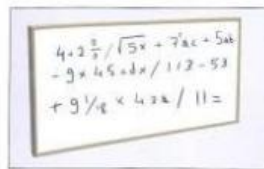 4+2 2/3 / √5x + 7²ac + 5ab
- 9 × 45 + dx / 113 - 53
+ 9 1/8 × 432 / 11 =